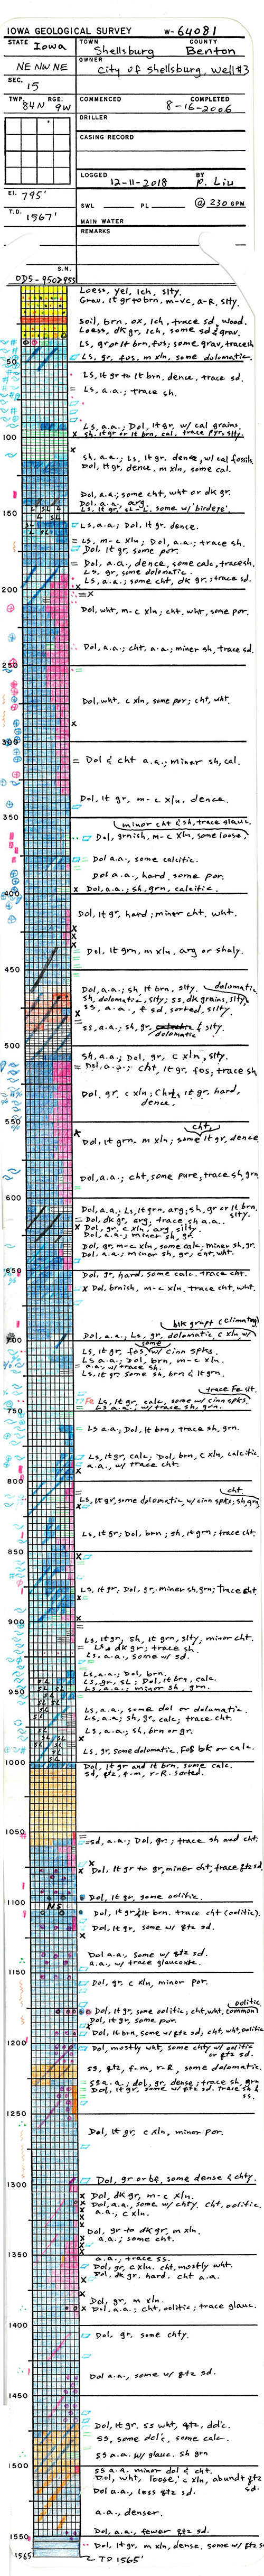 IOWA GEOLOGICAL SURVEY W-64081
STATE Iowa
TOWN Shellsburg
COUNTY Benton
NE NW NE
OWNER City of Shellsburg, Well #3
SEC. 15
TWP. 84N RGE. 9W
COMMENCED
COMPLETED 8-16-2006
DRILLER
CASING RECORD
LOGGED 12-11-2018
BY P. Liu
EL. 795'
T.D. 1567'
SWL PL @ 230 GPM
MAIN WATER
REMARKS
S.N.
Loess, yel, lch, slty.
Grav, lt gr to brn, m-vc, a-R, slty.
Soil, brn, ox, lch, trace sd, wood.
Loess, dk gr, lch, some sd & grav.
Ls, gr or lt brn, fos; some grav, trace sh
50
Ls, gr, fos, m xln, some dolomatic.
Ls, lt gr to lt brn, dence, trace sd.
Ls, a.a.; trace sh.
Ls, a.a.; Dol, lt gr, w/ cal grains.
100
sh, lt gr or lt brn, cal, trace pyr, slty.
sh, a.a.; Ls, lt gr, dence, w/ cal fossils
Dol, lt gr, dence, m xln, some cal.
Dol, a.a.; some cht, wht or dk gr.
Dol, a.a., arg.
Ls, lt gr, "SL-L", some w/ "birdeye".
150
Ls, a.a.; Dol, lt gr, dence.
Ls, m-c xln; Dol, a.a.; trace sh.
Dol, lt gr, some por.
Dol, a.a., dence, some calc, trace sh.
Ls, gr, some dolomatic.
Ls, a.a.; some cht, dk gr; trace sd.
200
Dol, wht, m-c xln; cht, wht, some por.
Dol, a.a.; cht, a.a.; miner sh, trace sd.
250
Dol, wht, c xln, some por; cht, wht.
300
Dol & cht a.a.; miner sh, cal.
Dol, lt gr, m-c xln, dence.
350
minor cht & sh, trace glauc.
Dol, grnish, m-c xln, some loose,
Dol a.a., some calcitic.
Dol a.a., hard, some por.
Dol, a.a.; sh, grn, calcitic.
400
Dol, lt gr, hard; miner cht, wht.
Dol, lt grn, m xln, arg or shaly.
450
Dol, a.a.; sh, lt brn, slty. dolomatic
sh, dolomatic, slty; ss, dk grains, slty,
ss, a.a., f sd, sorted, silty.
ss, a.a., sh, gr, dolomatic & slty.
500
sh, a.a.; Dol, gr, c xln, slty.
Dol, a.a.; cht, lt gr, fos; trace sh
Dol, gr, c xln; cht, lt gr, hard,
dence,
550
cht,
Dol, lt grn, m xln; some lt gr, dence
Dol, a.a.; cht, some pure, trace sh, grn
600
Dol, a.a.; Ls, lt grn, arg; sh, gr or lt brn,
slty.
Dol, dk gr, arg; trace sh a.a.
Dol, gr, c xln, arg, slty.
Dol, a.a.; miner sh, gr.
Dol, gr, m-c xln, some calc, miner sh, gr.
Dol, a.a.; miner sh, gr; cht, wht.
650
Dol, gr, hard, some calc, trace cht.
Dol, brnish, m-c xln, trace cht, wht.
700
Dol, a.a., Ls, gr, dolomatic c xln w/
some
Ls, lt gr, fos, w/ cinn spks.
Ls a.a.; Dol, brn, m-c xln.
a.a. w/ trace sh.
Ls, lt gr, some sh, brn & lt grn.
Fe
Ls, lt gr, calc, some w/ cinn spks,
Ls a.a., w/ trace sh, grn.
750
Ls a.a.; Dol, lt brn, trace sh, grn.
Ls, lt gr, calc; Dol, brn, c xln, calcitic.
a.a., w/ trace cht.
800
cht,
Ls, lt gr, some dolomatic, w/ cinn spks; sh, grn
Ls, lt gr; Dol, brn; sh, lt grn; trace cht.
850
Ls, lt gr; Dol, gr, miner sh, grn; trace cht.
900
Ls, lt gr, sh, lt grn, slty, minor cht.
Ls, dk gr; trace sh.
Ls, a.a., some w/ sd.
Ls a.a.; Dol, brn.
Ls, gr, SL; Dol, lt brn, calc.
Ls, a.a.; minor sh, grn.
950
Ls, a.a., some dol or dolomatic.
Ls, a.a.; sh, gr, calc; trace cht.
Ls, a.a.; sh, brn or gr.
Ls, gr, some dolomatic. Fos bk or calc.
1000
Dol, lt gr and lt brn, some calc.
sd, qtz, f-m, r-R, sorted.
1050
sd, a.a.; Dol, gr; trace sh and cht.
Dol, lt gr to gr, miner cht, trace qtz sd.
Dol, lt gr, some oolitic.
1100
NS
Dol, lt gr & lt brn, trace cht (oolitic).
Dol, lt gr, some w/ qtz sd.
Dol a.a., some w/ qtz sd.
a.a., w/ trace glaucoxte.
1150
Dol, gr, c xln, minor por.
oolitic
Dol, lt gr, some oolitic; cht, wht, (common)
Dol, lt gr, some por.
Dol, lt brn, some w/ qtz sd; cht, wht, oolitic
1200
Dol, mostly wht, some chty w/ oolitic
or qtz sd.
ss, qtz, f-m, r-R, some dolomatic.
ss a.a.; dol, gr, dense; trace sh, gr.
Dol, lt gr, some w/ qtz sd. trace sh &
ss.
1250
Dol, lt gr, c xln, minor por.
1300
Dol, gr or bf, some dense & chty.
Dol, dk gr, m-c xln.
Dol, a.a., some w/ chty. cht, oolitic.
a.a., c xln.
Dol, gr to dk gr, m xln.
a.a.; some cht.
1350
a.a.; trace ss.
Dol, gr, c xln. cht, mostly wht.
Dol, dk gr, hard. cht a.a.
Dol, gr, m xln.
Dol, a.a.; cht, oolitic; trace glauc.
1400
Dol, gr, some chty.
Dol a.a., some w/ qtz sd.
1450
Dol, lt gr. ss wht, qtz, dol'c.
ss, some dol'c, some calc.
ss a.a. w/ glauc. sh grn
1500
ss a.a. minor dol & cht.
Dol, wht, loose, c xln, abundt qtz
sd.
Dol a.a., less qtz sd.
a.a., denser.
1550
Dol, a.a., fewer qtz sd.
Dol, lt gr, m xln, dense, some w/ qtz sd
1565
TD 1565'